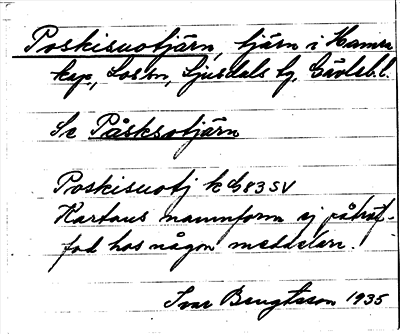 Poskisuotjärn, tjärn i Hamra
kap, Los sn, Ljusdals tg, Gävleb. l.
Se Påsksotjärn
Poskisuotj k G83 SV
Kartans namnform ej påträf-
fad hos någon meddelare.
Ivar Bengtsson 1935